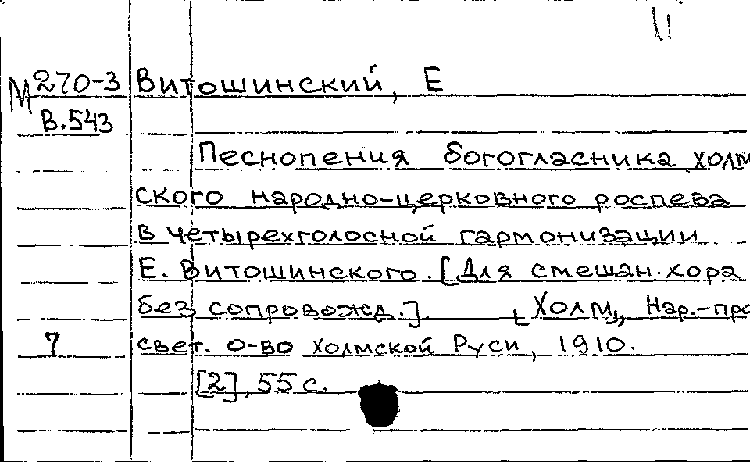 М 270-3 Витошинский, Е
В.543
Песнопения богогласника холм
ского народно-церковного роспева
в четырехголосной гармонизации
Е. Витошинского. [Для смешан. хора
без сопровожд.]. [Холм], Нар.-про
7 свет. о-во Холмской Руси, 1910.
[2], 55 с.